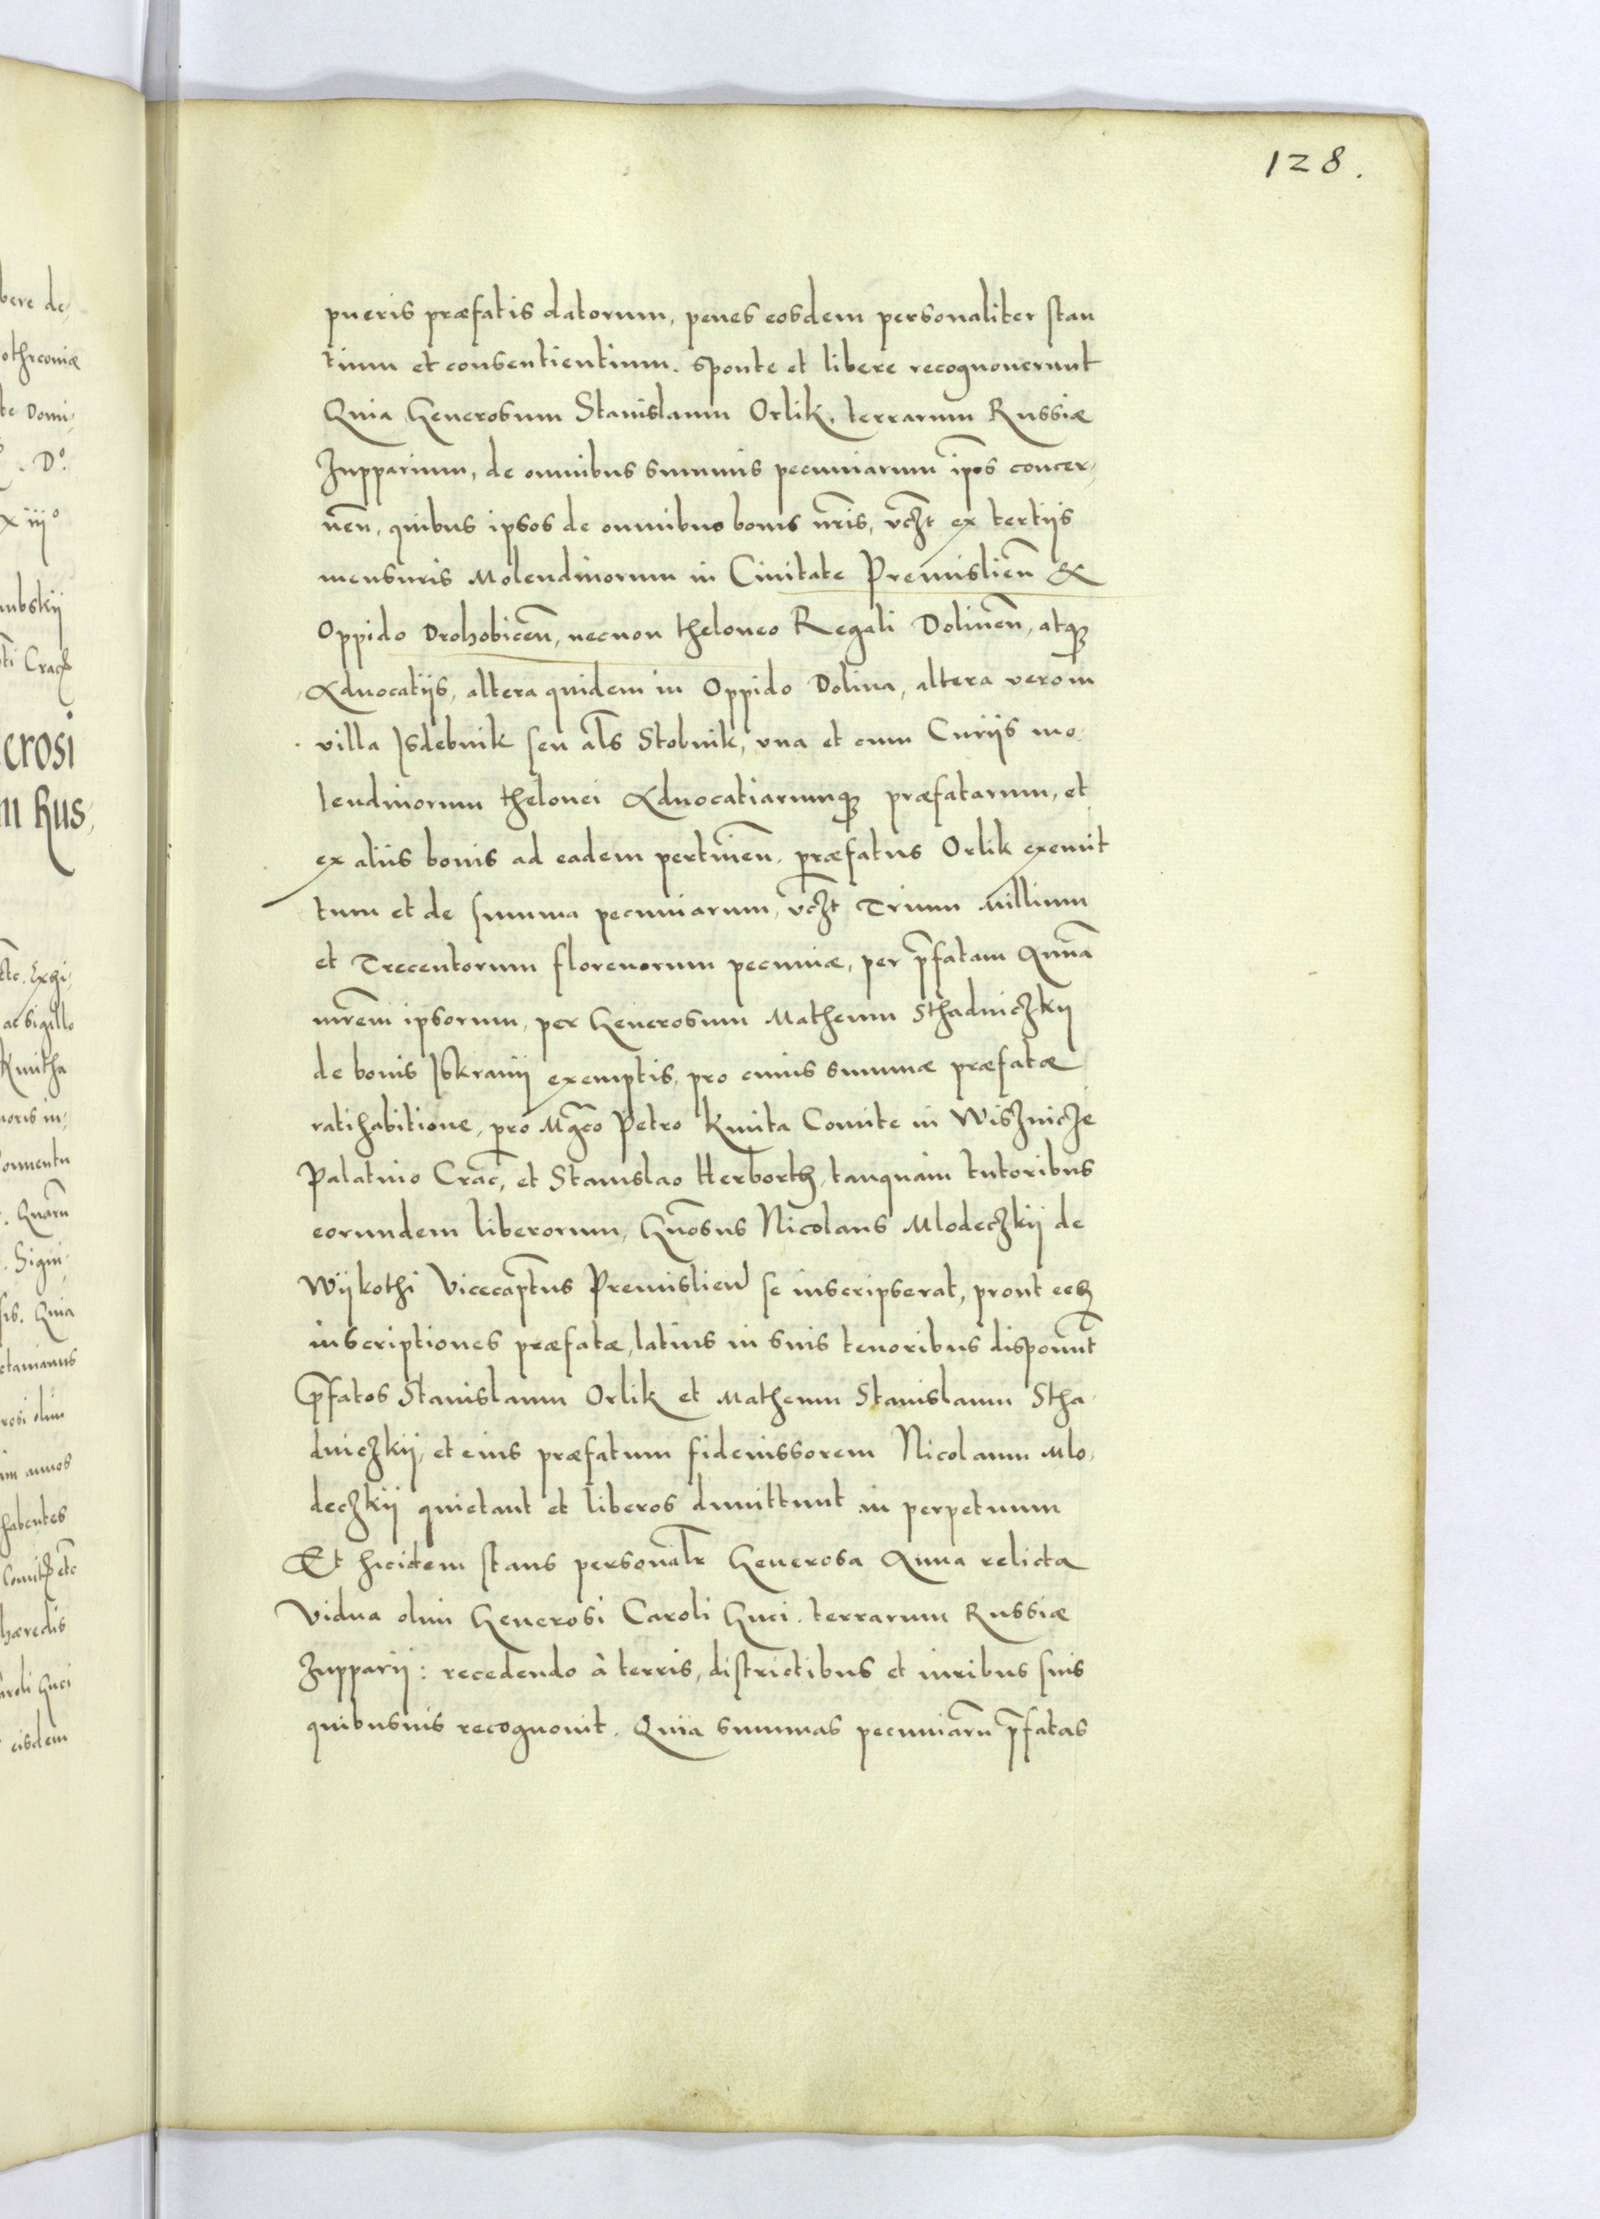 128.
pueris præfatis datorum, penes eosdem personaliter stan
tium et consentientium. Sponte et libere recognouerunt
Quia Generosum Stanislaum Orlik, terrarum Russiæ
Zupparium, de omnibus summis pecuniarum ip̃os concer,
neñ, quibus ipsos de omnibus bonis nr̃is, vcꝫt ex tertijs
mensuris Molendinorum in Ciuitate Premislieñ &
Oppido Drohobiceñ, necnon theloneo Regali Dolineñ, atqꝫ
Aduocatijs, altera quidem in Oppido Dolina, altera vero in
villa Isdebnik seu al̃s Stobnik, vna et cum Curijs mo
lendinorum thelonei Aduocatiarumqꝫ præfatarum, et
ex alijs bonis ad eadem pertineñ. præfatus Orlik exemit
tum et de summa pecuniarum, vcꝫt Trium Millium
et Trecentorum florenorum pecuniæ, per p̃fatam Annã
mr̃em ipsorum, per Generosum Matheum Sthadniczkij
de bonis Iskranij exemptis, pro cuius summæ præfatæ
ratihabitione, pro Mgc̃o Petro Kmita Comite in Wisznicze
Palatino Crac̃, et Stanislao Herborth, tanquam tutoribus
eorundem liberorum, Gñosus Nicolaus Mlodeczkij de
Wijkothi Vicecap̃tus Premislieñ se inscripserat, prout eeꝫ
inscriptiones præfatæ, latius in suis tenoribus disponũt
P̃fatos Stanislaum Orlik et Matheum Stanislaum Stha
dniczkij, et eius præfatum fideiussorem Nicolaum Mlo,
deczkij quietant et liberos dimittunt in perpetuum
Et hicidem stans personalr̃ Generosa Anna relicta
Vidua olim Generosi Caroli Guci. terrarum Russiæ
Zupparij: recedendo à terris, districtibus et iuribus suis
quibusuis recognouit. Quia summas pecuniarũ p̃fatas